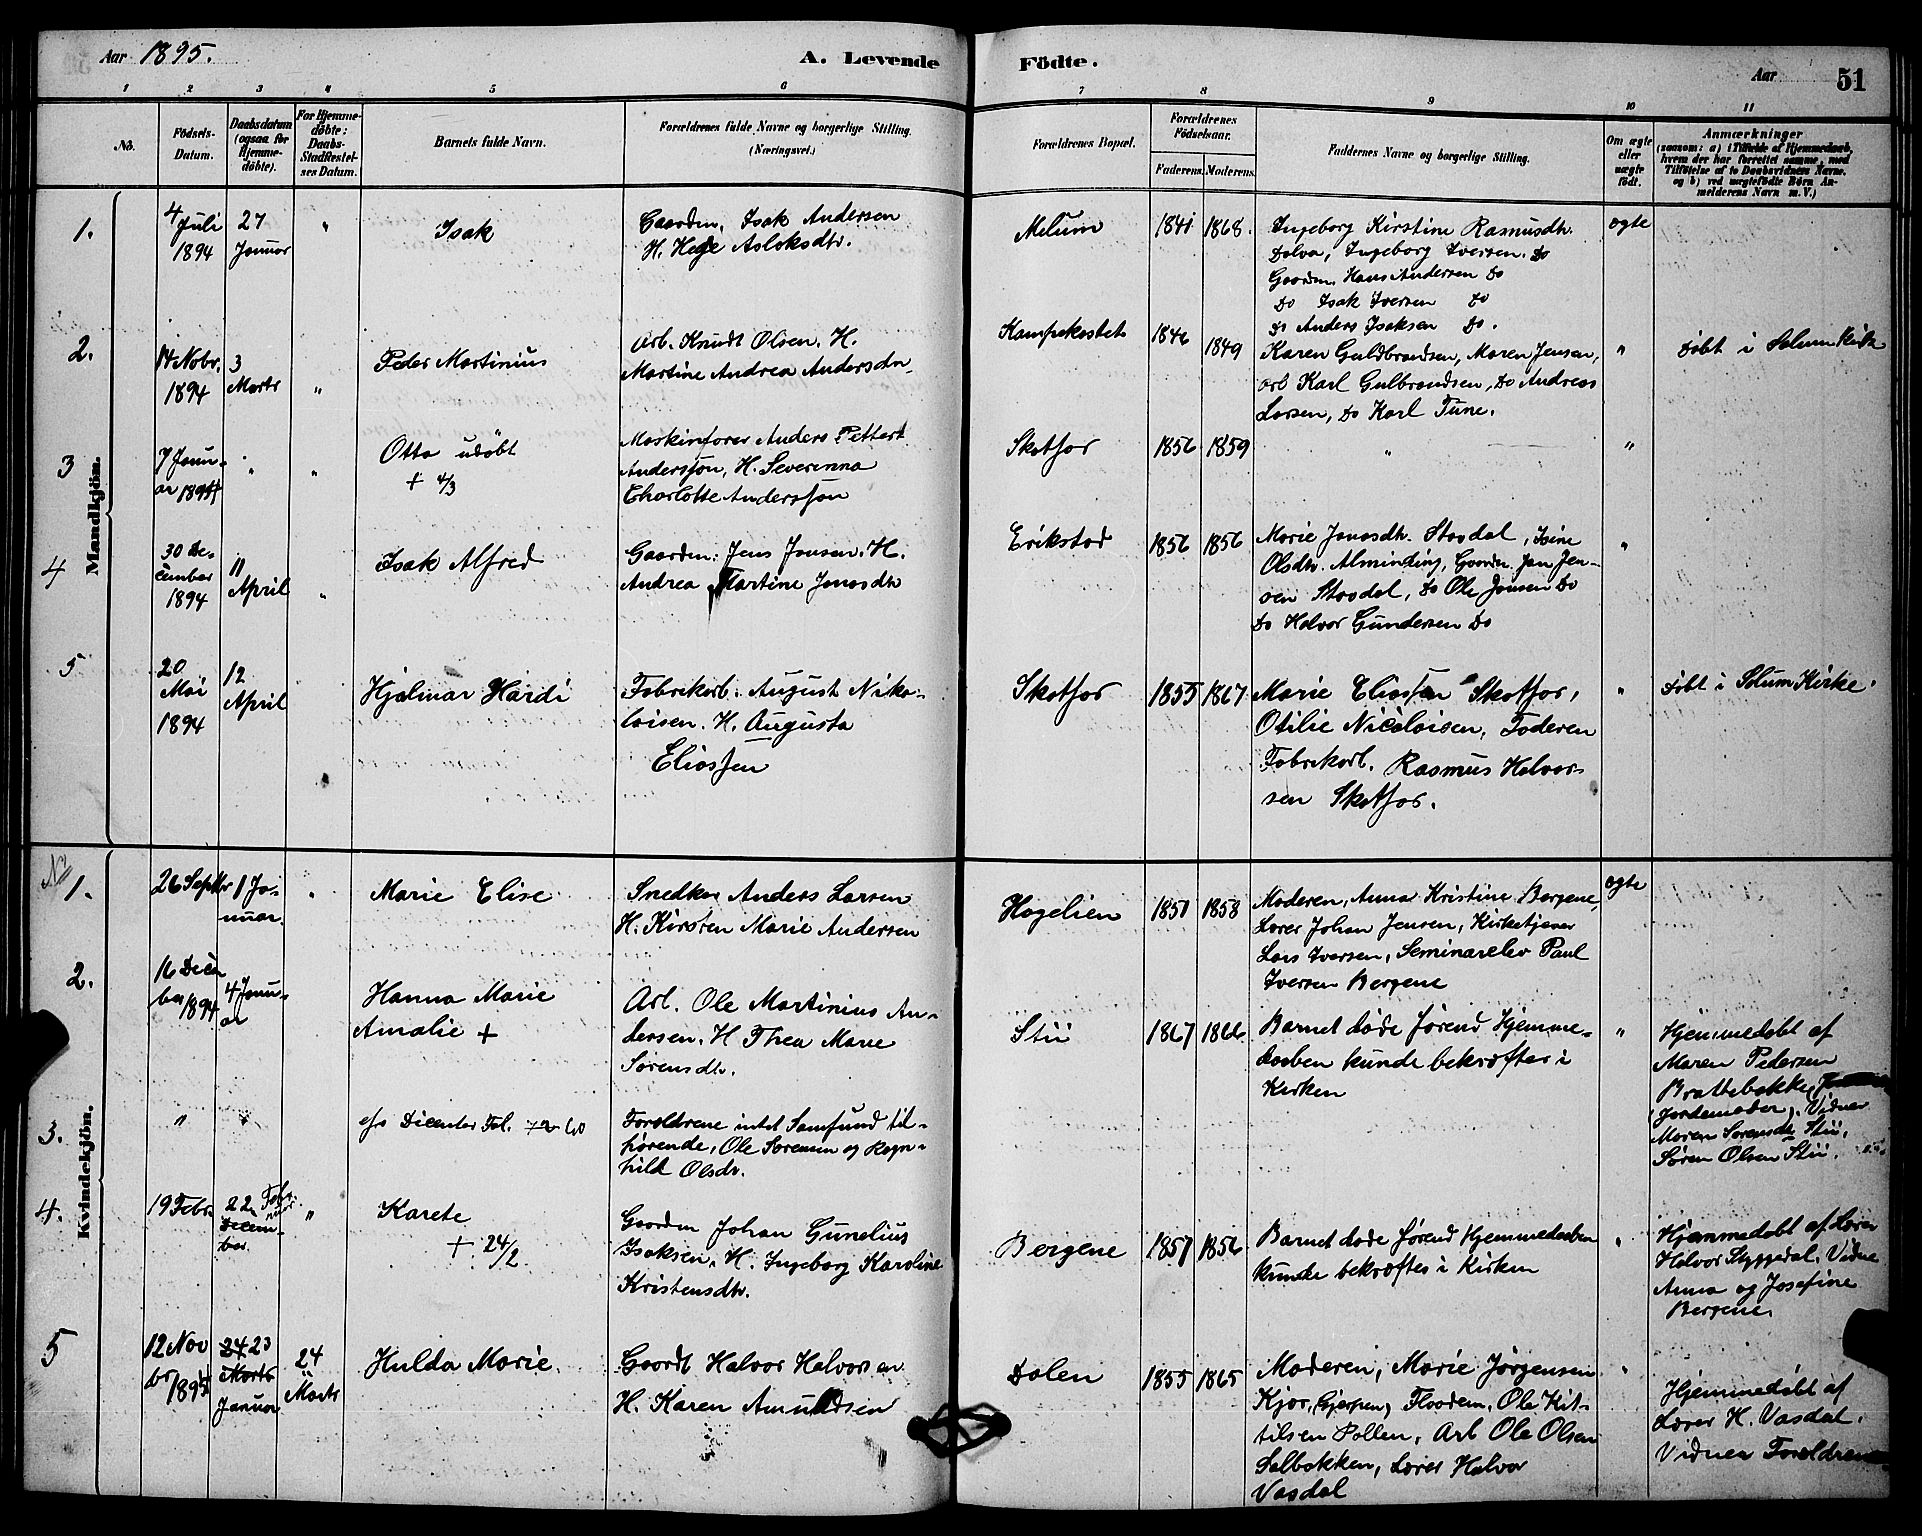 Aar 1895.
A. Levende
Födte.
Aar
51
1 2 3 4 5 6 7 8 9 10 11
No.
Födsels-
Datum.
Daabsdatum
(ogsaa for
Hjemme-
döbte).
For Hjemme-
döbte:
Daabs-
Stadfæstel-
ses Datum.
Barnets fulde Navn.
Forældrenes fulde Navne og borgerlige Stilling.
(Næringsvei.)
Forældrenes Bopæl.
Forældrenes
Födselsaar.
Faderens. Moderens.
Faddernes Navne og borgerlige Stilling.
Om ægte
eller
uægte
født.
Anmærkninger
(saasom: a) i Tilfælde af Hjemmedaab,
hvem der har forrettet samme, med
Tilföielse af to Daabsvidners Navne,
og b) ved uægtefödte Börn An-
melderens Navn m. V.)
Mandkjön.
1.
4 Juli
1894
27
Januar
"
Isak
Gaardm. Isak Andersen
H. Hege Asloksdtr.
Melum
1841
1868.
Ingeborg Kirstine Rasmusdtr.
Dolva, Ingeborg Iversen. Do
Gaardm. Hans Andersen Do
Do Isak Iversen Do
Do Anders Isaksen Do.
ægte
2.
14 Nobr.
1894
3
Marts
"
Peder Martinius
Arb. Knudt Olsen. H.
Martine Andrea Andersdtr.
Kampekastet
1846
1849
Karen Guldbrandsen, Maren Jensen,
arb Karl Gulbrandsen, Do Andreas
Larsen, Do Karl Tune.
"
Døbt i Solum Kirke
3
7 Janu-
ar 1894
"
"
Otto udøbt
+ 4/3
Maskinfører Anders Pettert
Anderssøn, H. Severinna
Charlotte Anderssøn
Skotfos
1856
1859
"
"
4
30 De-
cember
1894
11
April
"
Isak Alfred
Gaardm: Jens Jensen. H.
Andrea Martine Jonasdtr
Erikstad
1856
1856
Marie Jonasdtr. Stavdal, Isine
Olsdtr. Alminding, Gaardm. Jan Jen-
sen Stavdal, Do Ole Jensen Do
Do Halvor Gundersen Do
"
5
20
Mai
1894
12
April
Hjalmar Hardi
Fabrikarb. August Niko-
laisen. H. Augusta
Eliassen
Skotfos
1855
1867
Marie Eliassen Skotfos,
Otilie Nicolaisen, Faderen
Fabrikarb. Rasmus Halvor-
sen Skotfos.
"
Døbt i Solum Kirke.
Kvindekjön.
No
1.
26 Septbr
1 Ja-
nuar.
"
Marie Elise
Snedker Anders Larsen
H. Kirsten Marie Andersen
Hagelien
1851
1858
Moderen, Anna Kristine Bergene,
Lærer Johan Jensen, Kirketjener
Lars Iversen, Seminarelev Paul
Iversen Bergene
ægte
2.
16 Decem
ber 1894
4 Janu-
ar
Hanna Marie
Amalie +
Arb. Ole Martinius An-
dersen. H Thea Marie
Sørensdtr.
Stii
1867
1866
Barnet døde førend Hjemme-
daaben kunde bekræftes i
Kirken
"
Hjemmedøbt af
Maren Pedersen
Brattebakke,
(Jordemoder). Vidner
Maren Sørensdtr Stii,
Søren Olsen Stii.
3.
"
"
Forældrene intet Samfund til-
hørende, Ole Sørensen og Ragn-
hild Olsdr.
4.
19 Febr.
22 Febr-
uar
Decem-
ber.
"
Karete
+ 24/2
Gaardm Johan Gunelius
Isaksen, H. Ingeborg Karoline
Kristensdtr.
Bergene
1857
1856
Barnet døde førend Hjemmedaaben
kunde bekræftes i Kirken
"
Hjemmedøbt af Lærer
Halvor Skyggedal. Vidne
Anna og Josefine
Bergene.
5
12 Nov
br 1894
24 23
Marts
Januar
24
Marts
Hulda Marie
Gaardb Halvor Halvorsen
H. Karen Amundsen
Dalen
1855
1865
Moderen, Marie Jørgensen
Kjør, Gjerpen, Ole Kit-
tilsen Pollen, Arb Ole Olsen
Salbakken, Lærer Halvor
Vasdal
"
Hjemmedøbt af
Lærer H. Vasdal.
Vidner Forældrene